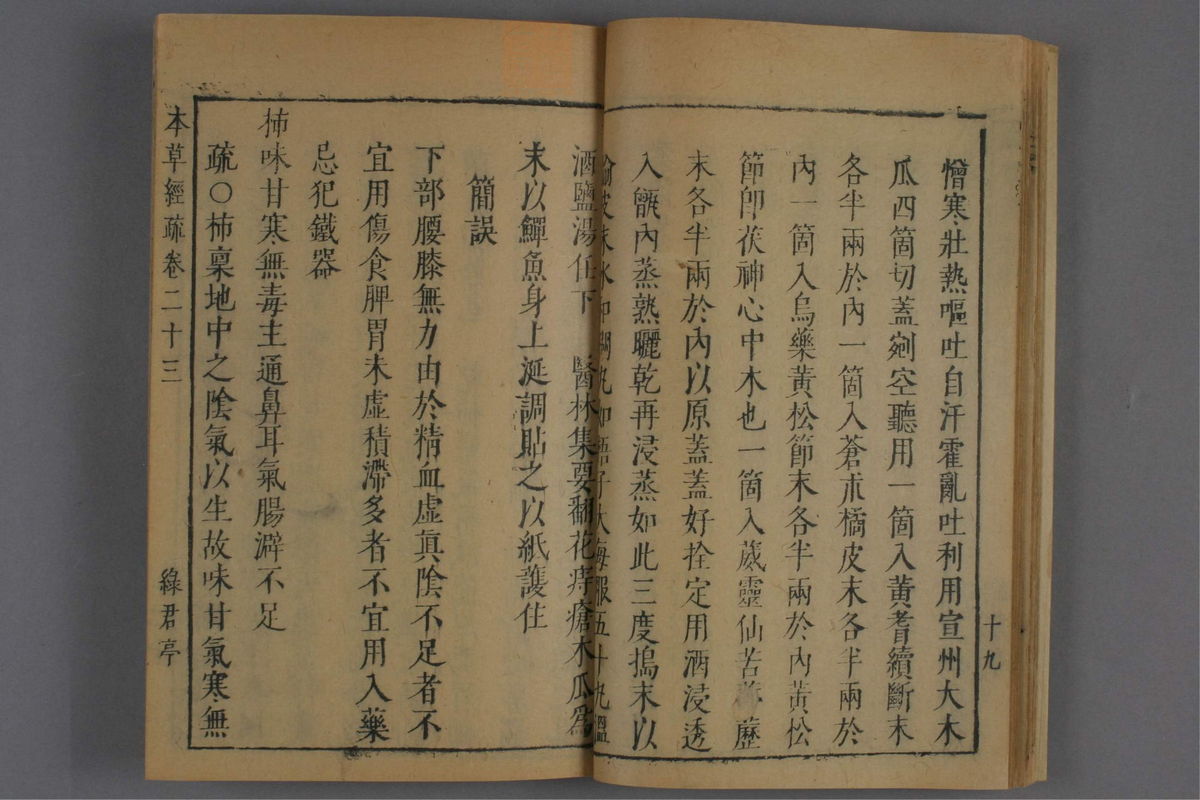 十九
憎寒壯熱嘔吐自汗霍亂吐利用宣州大木
瓜四箇切蓋剜空聽用一箇入黃耆續斷末
各半兩於內一箇入蒼朮橘皮末各半兩於
內一箇入烏藥黃松節末各半兩於內黃松
節卽茯神心中木也一箇入葳靈仙苦葶藶
末各半兩於內以原蓋蓋好拴定用酒浸透
入甑內蒸熟曬乾再浸蒸如此三度搗末以
榆皮末水和糊丸如梧子大每服五十丸溫
酒鹽湯任下 醫林集要翻花痔瘡木瓜爲
末以鱓魚身上涎調貼之以紙護住
簡誤
下部腰膝無力由於精血虛眞陰不足者不
宜用傷食脾胃未虛積滯多者不宜用入藥
忌犯鐵器
柿味甘寒無毒主通鼻耳氣腸澼不足
疏○柿稟地中之陰氣以生故味甘氣寒無
本草經疏卷二十三
綠君亭